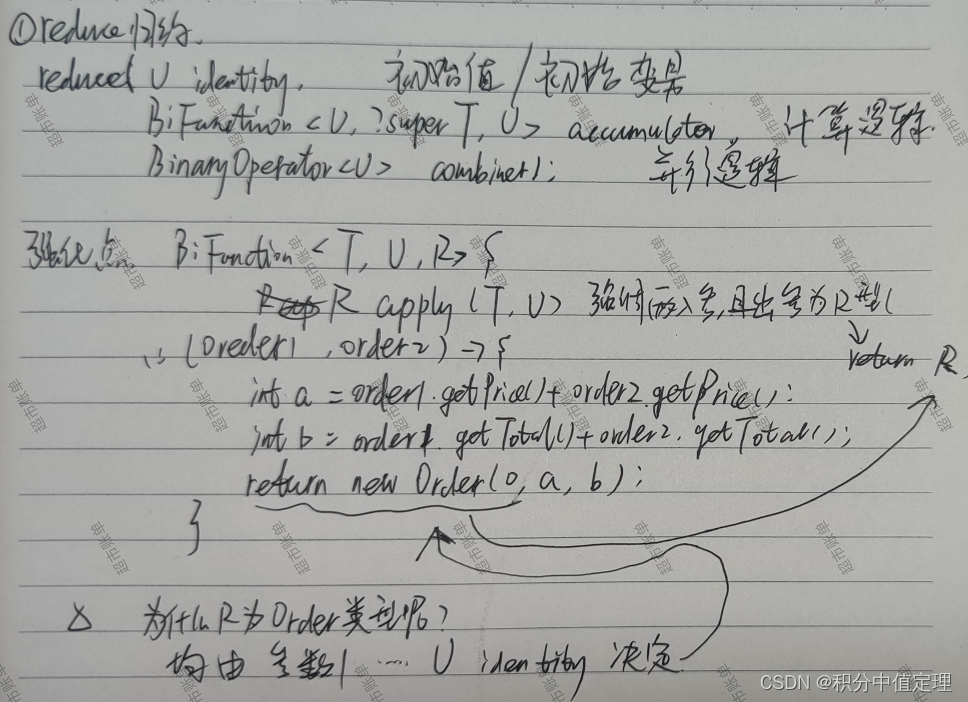 ①reduce归约.
reduced U identity, 初始值/初始变量
BiFunction<U, ?super T, U> accumulator, 计算逻辑.
BinaryOperator<U> combiner); 并行逻辑
强化点 BiFunction<T, U, R>{
R apply(T, U) 强制两入参,且出参为R型(
return R
∵ (oreder1, order2)->{
int a = order1.getPrice()+order2.getPrice();
int b = order1.getTotal()+order2.getTotal();
return new Order(0, a, b);
}
△ 为什么R为Order类型呢?
均由 参数1 …… U identity 决定
超市账单
CSDN @积分中值定理